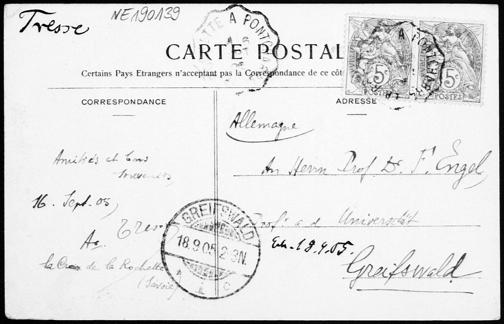 Tresse
NE190139
A PONTCH
CARTE POSTALE
Certains Pays Etrangers n'acceptent pas la Correspondance de ce côté
CORRESPONDANCE
ADRESSE
A PONTCHARRA
5c
POSTES
5c
POSTES
Allemagne
Amitiés et bons
souvenirs
16. Sept. 05,
A. Tresse
la Croix de la Rochette
(Savoie)
An Herrn Prof. Dr. F. Engel
Prof. a d Universität
Erh. 18.9.05.
Greifswald.
GREIFSWALD
18.9.05.2-3N.